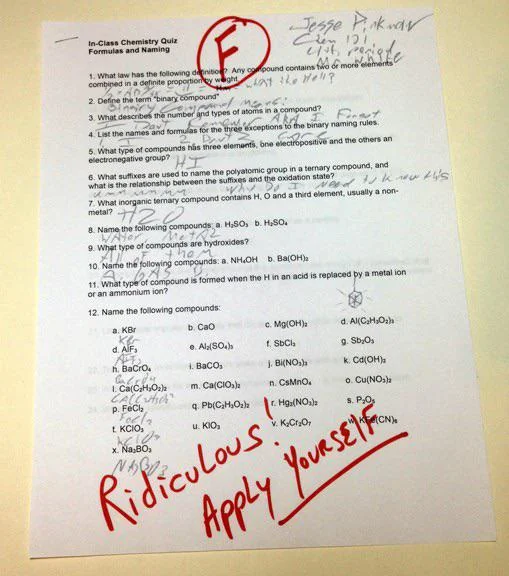 In-Class Chemistry Quiz
Formulas and Naming
F
Jesse Pinkman
4th period
Mr White
1. What law has the following definition? Any compound contains two or more elements
combined in a definite proportion by weight.
what the Hell?
2. Define the term "binary compound"
Binary Compound means:
3. What describes the number and types of atoms in a compound?
Dont AKA I Forget
4. List the names and formulas for the three exceptions to the binary naming rules.
1. I 2. Don't 3. Care
5. What type of compounds has three elements, one electropositive and the others an
electronegative group? HI
6. What suffixes are used to name the polyatomic group in a ternary compound, and
what is the relationship between the suffixes and the oxidation state?
Why Do I need to know this
7. What inorganic ternary compound contains H, O and a third element, usually a non-
metal? H2O
8. Name the following compounds: a. H₂SO₃ b. H₂SO₄
WAter MetAl
9. What type of compounds are hydroxides?
All of them
10. Name the following compounds: a. NH₄OH b. Ba(OH)₂
A. bAS
11. What type of compound is formed when the H in an acid is replaced by a metal ion
or an ammonium ion?
12. Name the following compounds:
a. KBr b. CaO c. Mg(OH)₂ d. Al(C₂H₃O₂)₃
KBr
d. AlF₃ e. Al₂(SO₄)₃ f. SbCl₃ g. Sb₂O₃
h. BaCrO₄ i. BaCO₃ j. Bi(NO₃)₃ k. Cd(OH)₂
l. Ca(C₂H₃O₂)₂ m. Ca(ClO₃)₂ n. CsMnO₄ o. Cu(NO₃)₂
p. FeCl₂ q. Pb(C₂H₃O₂)₂ r. Hg₂(NO₃)₂ s. P₂O₅
FeCl2
t. KClO₃ u. KIO₃ v. K₂Cr₂O₇
KClO3
x. Na₃BO₃
NA3BO3
Ridiculous!
Apply YOURSELF